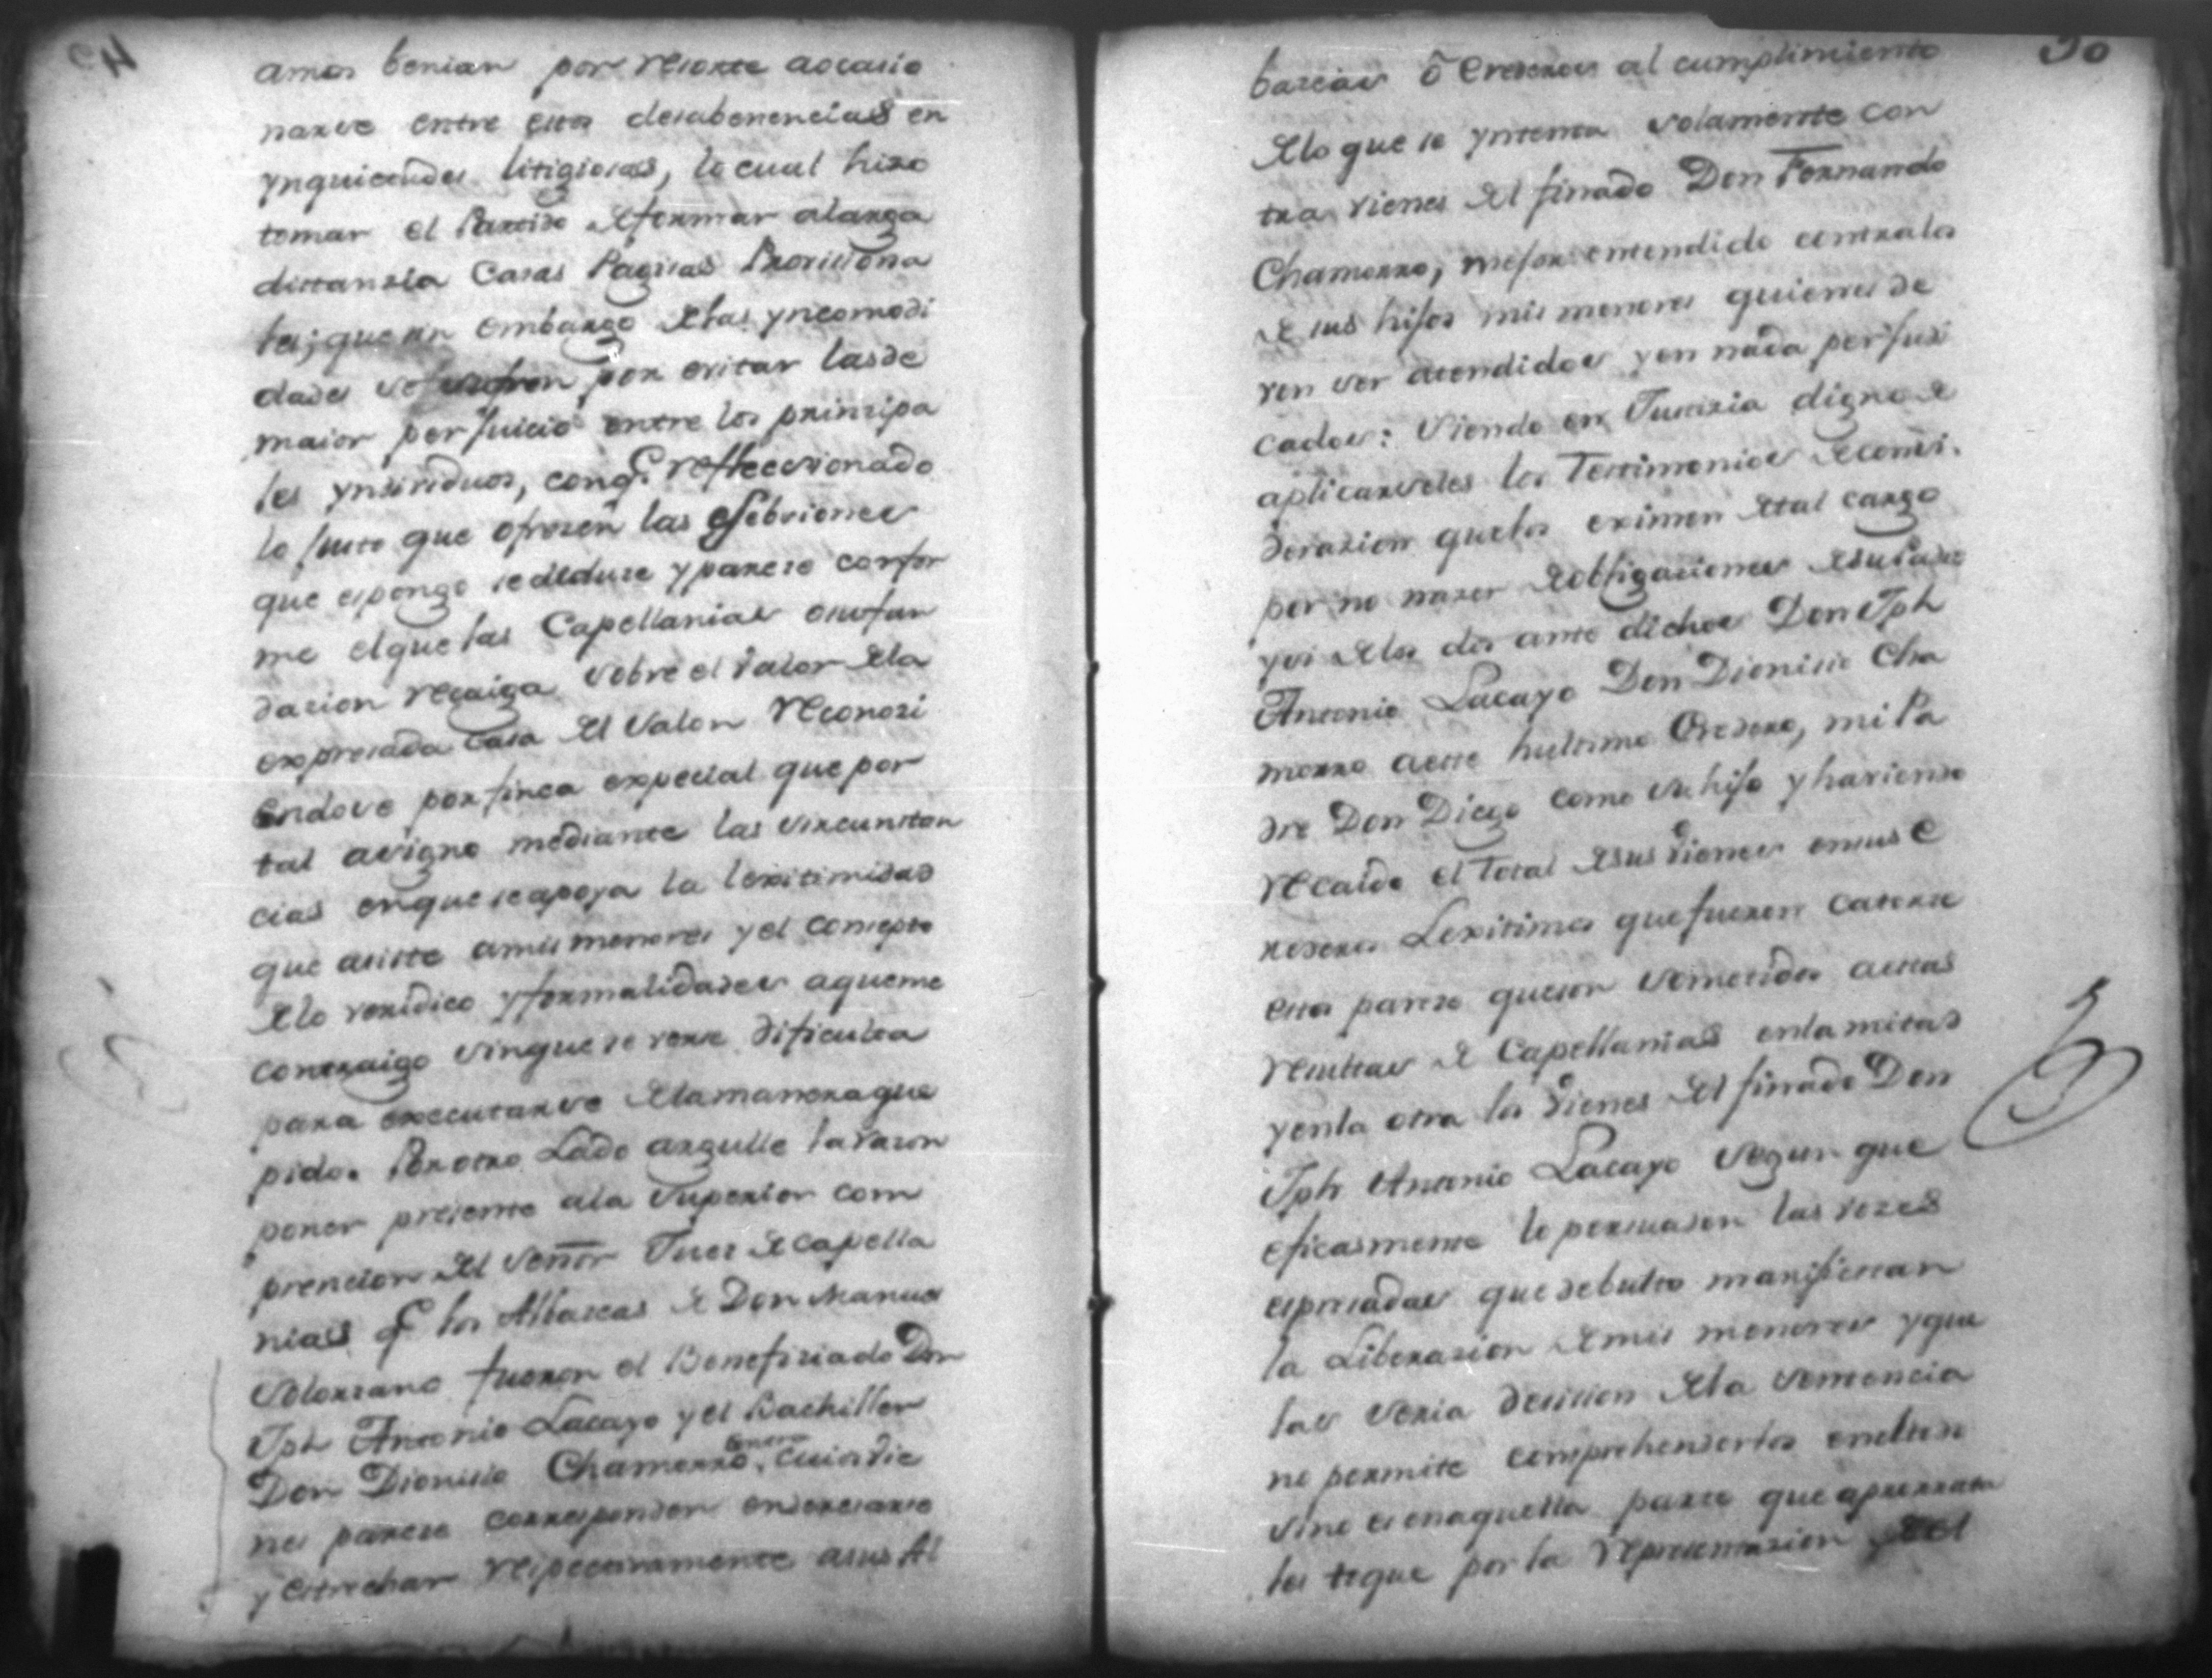 amos benian por resorte aocacio
narse entre estos desabenencias en
ynquietudes litigiosas, lo cual hizo
tomar el Partido deformar alarga
distanzia Casas Pagisas Provisiona
les; que sin embargo delas yncomodi
dades se sufren por evitar lasde
maior perjuicio entre los prinzipa
les yndividuos, conq.e refleccionado
lo justo que ofrezen las
que espongo sededuze y pareze confor
me elque las Capellanias enufun
dazion recaiga sobre el valor dela
expresada Casa del Salon reconozi
endose por finca expecial que por
tal asigno mediante las sircunstan
cias enque seapoya la lexitimidad
que asiste amis menores y el consepto
delo veridico y formalidades aqueme
contraigo sinque se verse dificulta
para executarse delamaneraque
pido. Por otro Lado argulle la razon
poner presente ala Superior com
prencion del Señor Juez de capella
nias q.e los Albaseas de Don Manuel
Solorzano fueron el Benefiziado Don
Jph Antonio Lacayo y el Bachiller
Don Dionisio Chamorro, Cuios vie
nes pareze corresponden enderesarse
y estrechar respectivamente asus Al
50
baseas ô Erederos al cumplimiento
delo que se yntenta solamente con
tra vienes del finado Don Fernando
Chamorro, mejor entendido contralos
de sus hijos mis menores quienes de
ven ser atendidos y en nada perjudi
cados: Siendo en Justizia digno de
aplicarseles los Testimonios deconsi
derazion quelos eximen detal cargo
por no nazer deobligaciones desu Padre
y si delos dos ante dichos Don Jph
Antonio Lacayo Don Dionisio Cha
morro aeste hultimo Eredero, mi Pa
dre Don Diego como su hijo y haviendo
recaido el total desus vienes ensus e
rederos Lexitimos que fueron catorze
estos pareze queson sometidos aestas
resultas de Capellanias enla mitad
yenla otra los vienes del finado Don
Jph Antonio Lacayo segun que
eficasmente lo persuaden las vozes
espresadas que debulto manifiestan
la Liberazion demis menores y que
las seria decicion dela sentencia
no permite comprehenderlos eneltodo
sino es enaquella parte que aprorrata
les toque por la representazion del